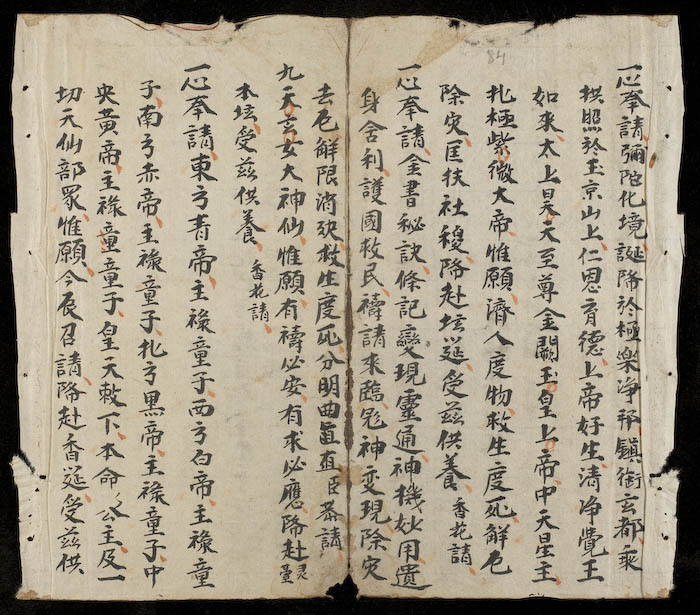 一心奉請彌陀化境誕降於極樂净邦鎮衛玄都乘
拱照於玉京山上仁恩育德上帝好生清净覺王
如來太上昊天至尊金闕玉皇上帝中天星主
北極紫微大帝惟願濟人度物救生度死解厄
除灾匡扶社稷降赴坛筵受兹供養 香花請
一心奉請金書秘訣條記變現靈通神機妙用遺
身舍利護國救民禱請來臨神变現除灾
去厄解限消殃救生度死分明曲直臣恭請
九天玄女大神仙惟願有禱必安有求必應降赴灵臺
本坛受兹供養 香花請
一心奉請東方青帝主祿童子西方白帝主祿童
子南方赤帝主祿童子北方黑帝主祿童子中
央黄帝主祿童童子皇天敕下本命公主及一
切天仙部眾惟願今辰召請降赴香筵受兹供